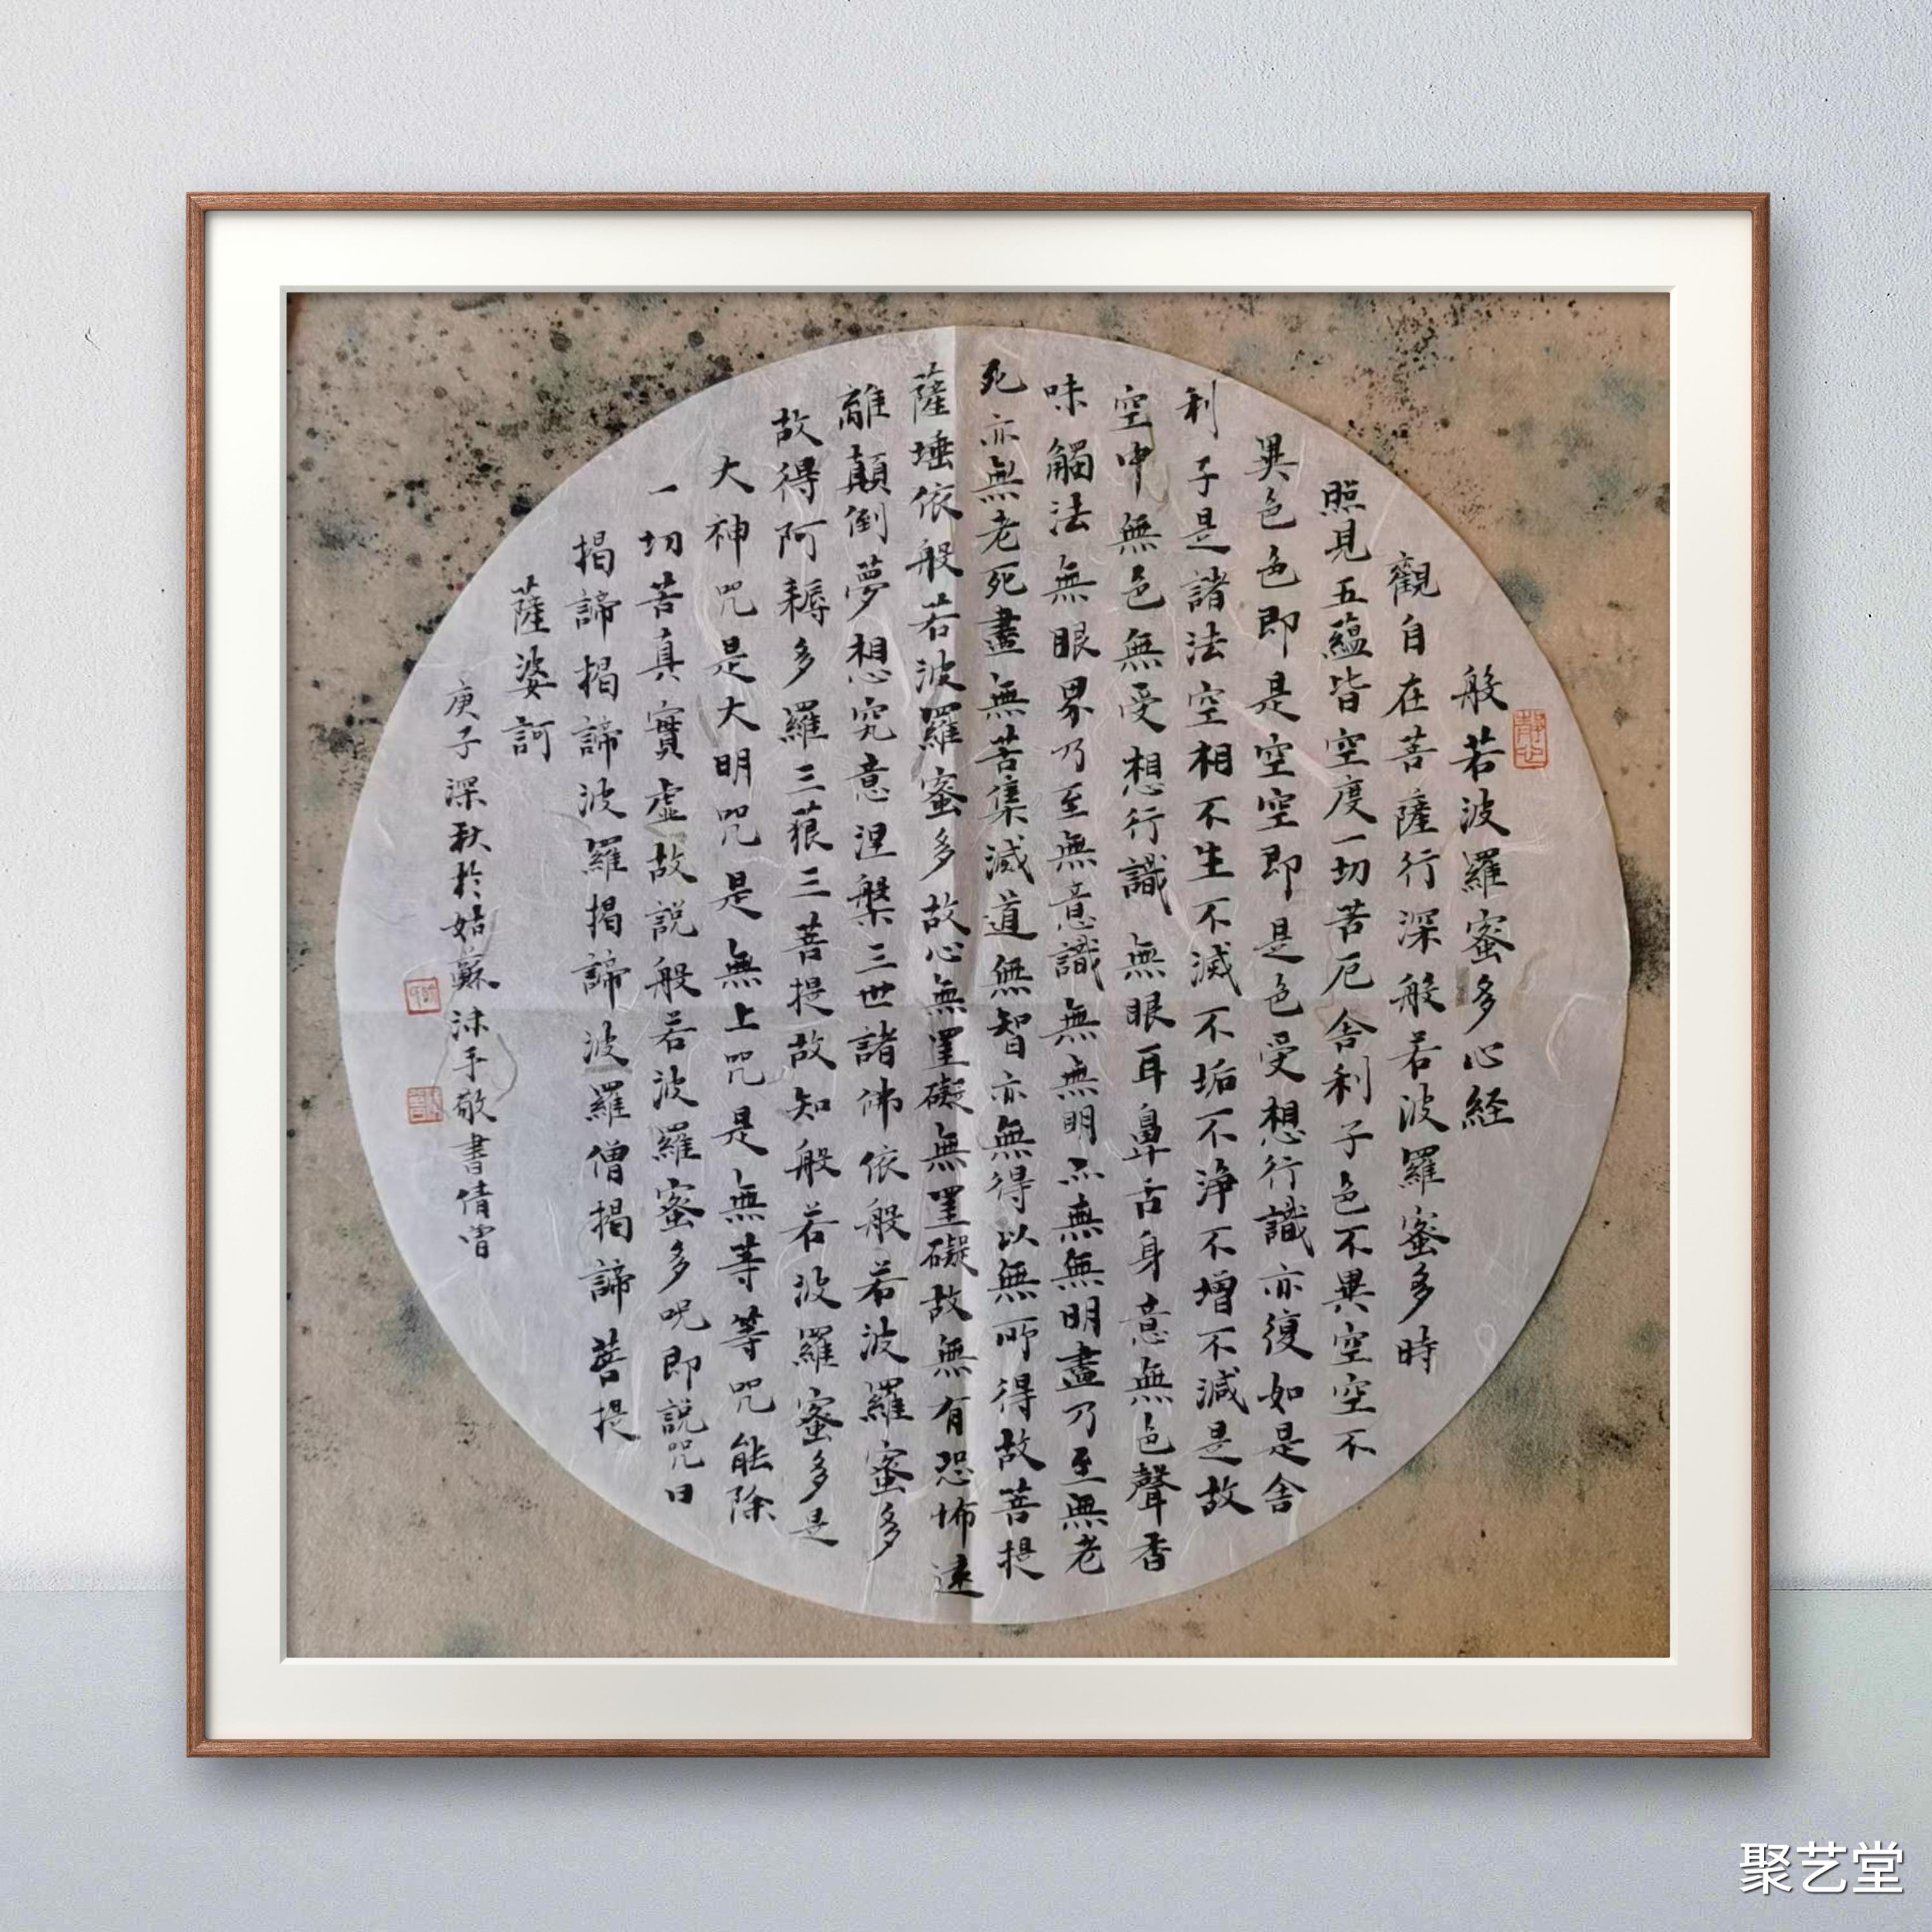 般若波羅蜜多心経
觀自在菩薩行深般若波羅蜜多時
照見五蘊皆空度一切苦厄舍利子色不異空空不
異色色即是空空即是色受想行識亦復如是舍
利子是諸法空相不生不滅不垢不淨不增不減是故
空中無色無受想行識無眼耳鼻舌身意無色聲香
味觸法無眼界乃至無意識無無明亦無無明盡乃至無老
死亦無老死盡無苦集滅道無智亦無得以無所得故菩提
薩埵依般若波羅蜜多故心無罣礙無罣礙故無有恐怖遠
離顛倒夢想究意涅槃三世諸佛依般若波羅蜜多
故得阿耨多羅三藐三菩提故知般若波羅蜜多是
大神咒是大明咒是無上咒是無等等咒能除
一切苦真實虛故説般若波羅蜜多呪即説咒曰
揭諦揭諦波羅揭諦波羅僧揭諦菩提
薩婆訶
庚子深秋於姑蘇沐手敬書倩
聚艺堂